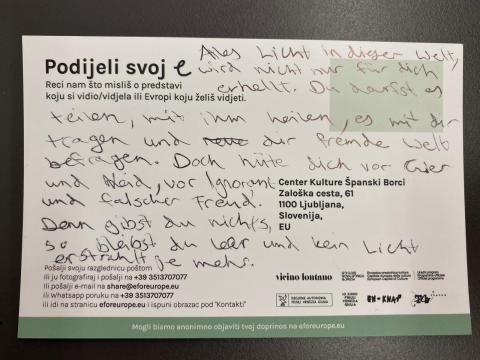 Alles Licht in dieser Welt,
wird nicht nur für dich
erhellt. Du darfst es
Podijeli svoj e
Reci nam što misliš o predstavi
koju si vidio/vidjela ili Evropi koju želiš vidjeti.
teilen, mit ihm heilen, es mit dir
tragen und neue dir fremde Welt
befragen. Doch hüte dich vor Gier
und Neid, vor Ignoranz
und falscher Freud.
Denn gibst du nichts,
so bleibst du leer und kein Licht
erstrahlt je mehr.
Center Kulture Španski Borci
Zaloška cesta, 61
1100 Ljubljana,
Slovenija,
EU
Pošalji svoju razglednicu poštom
ili ju fotografiraj i pošalji na +39 3513707077
ili pošalji e-mail na share@eforeurope.eu
ili Whatsapp poruku na +39 3513707077
ili idi na stranicu eforeurope.eu i ispuni obrazac pod "Kontakti"
vicino lontano
REGIONE AUTONOMA
FRIULI VENEZIA GIULIA
IO SONO
FRIULI
VENEZIA
GIULIA
EN-KNAP
Mogli bismo anonimno objaviti tvoj doprinos na eforeurope.eu